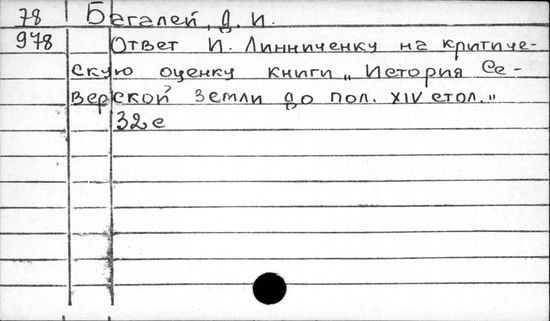 78 Багалей, Д. И.
978 Ответ И. Линниченку на критиче-
скую оценку книги „История Се-
верской земли до пол. XIV стол."
32 с